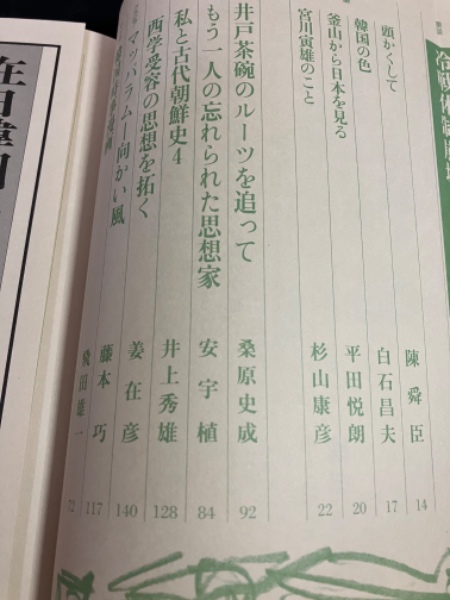 陳舜臣 14
頭かくして 白石昌夫 17
韓国の色 平田悦朗 20
釜山から日本を見る 杉山康彦 22
宮川寅雄のこと
井戸茶碗のルーツを追って 桑原史成 92
もう一人の忘れられた思想家 安宇植 84
私と古代朝鮮史4 井上秀雄 128
西学受容の思想を拓く 姜在彦 140
マッパラム―向かい風 藤本巧 117
飛田雄一 72
在日韓国